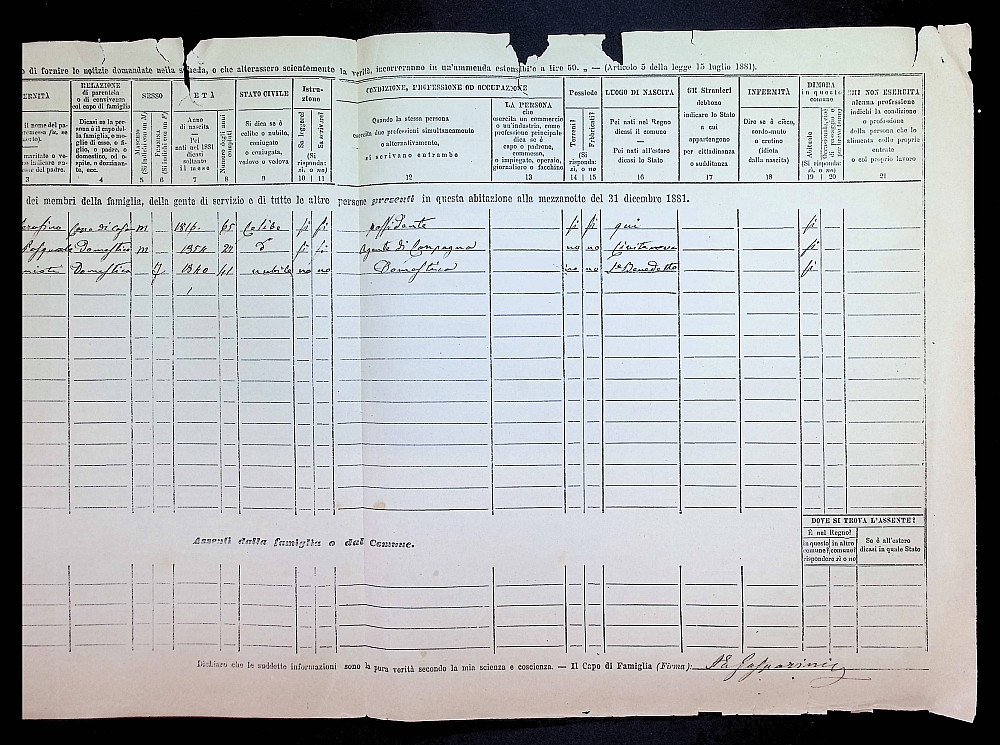 o di fornire le notizie domandate nella scheda, o che alterassero scientemente la verità, incorreranno in un'ammenda estensibile a lire 50. „ — (Articolo 5 della legge 15 luglio 1881).
ERNITÀ
il nome del pa-
maritata o ve-
me del padre.
3
RELAZIONE
di parentela
o di convivenza
col capo di famiglia
Dicasi se la per-
sona è il capo del-
la famiglia, o mo-
glie di esso, o fi-
glio, o padre, o
domestico, od o-
spite, o dozzinan-
te, ecc.
4
SESSO
Maschio
(Si indichi con M)
5
Femmina
(Si indichi con F)
6
ETÀ
Anno
di nascita
—
Pei
nati nel 1881
dicasi
soltanto
il mese
7
Numero degli anni
compiti
8
STATO CIVILE
Si dica se è
celibe o nubile,
coniugato
o coniugata,
vedovo o vedova
9
Istru-
zione
Sa leggere?
Sa scrivere?
(Si
risponda:
sì, o no)
10 11
CONDIZIONE, PROFESSIONE OD OCCUPAZIONE
Quando la stessa persona
esercita due professioni simultaneamente
o alternativamente,
si scrivano entrambe
12
LA PERSONA
che
esercita un commercio
o un'industria, come
professione principale
dica se è
capo o padrone,
commesso,
o impiegato, operaio,
giornaliero o facchino
13
Possiede
Terreni?
Fabbricati?
(Si
risponda:
sì, o no)
14 15
LUOGO DI NASCITA
Pei nati nel Regno
dicasi il comune
—
Pei nati all'estero
dicasi lo Stato
16
Gli Stranieri
debbono
indicare lo Stato
a cui
appartengono
per cittadinanza
o sudditanza
17
INFERMITÀ
Dire se è cieco,
sordo-muto
o cretino
(idiota
dalla nascita)
18
DIMORA
in questo
comune
Abituale
(Si risponda:
sì, o no)
19 20
CHI NON ESERCITA
alcuna professione
indichi la condizione
o professione
della persona che lo
alimenta colle proprie
entrate
o col proprio lavoro
21
dei membri della famiglia, della gente di servizio e di tutte le altre persone presenti in questa abitazione alla mezzanotte del 31 dicembre 1881.
erafino Capo di Casa m 1816 65 Celibe si si possidente si si qui si
Pasquale Domestico m 1854 Agente di Campagna no no Civitanova si
Domestica f 1840 41 nubile no no Domestica no no S. Benedetto si
Assenti dalla famiglia o dal Comune.
DOVE SI TROVA L'ASSENTE?
È nel Regno?
in questo comune?
in altro comune?
rispondere sì o no
Se è all'estero
dicasi in quale Stato
Dichiaro che le suddette informazioni sono la pura verità secondo la mia scienza e coscienza. — Il Capo di Famiglia (Firma): Gasparini